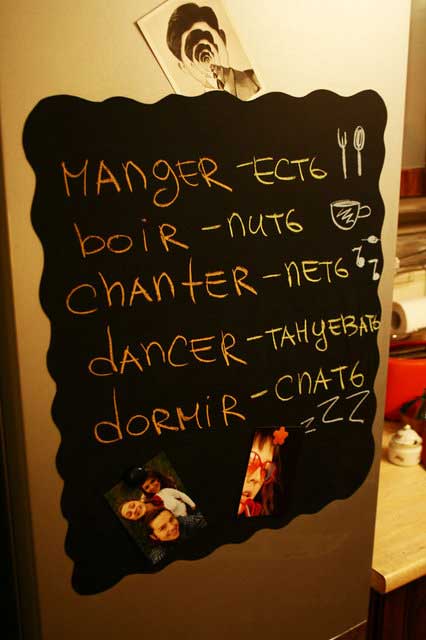 MANGER - ЕСТЬ
boiR - пить
chanter - пЕТЬ
dANCER - ТАНЦЕВАТЬ
dORMiR - СпАТЬ
zZZ